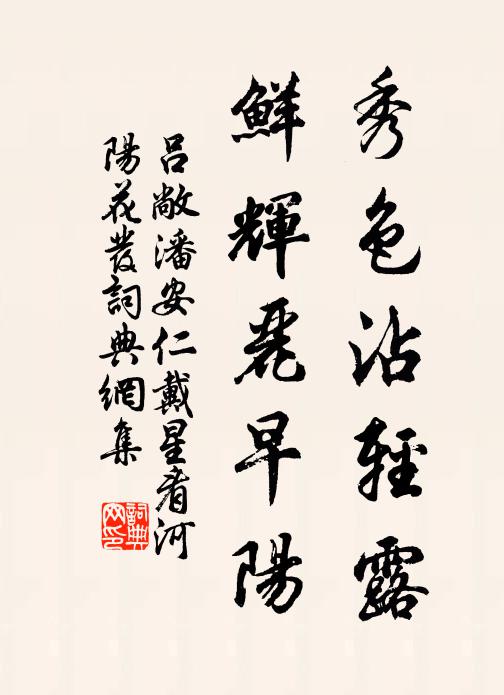 秀色沾輕露
鮮輝麗早陽
呂敞潘安仁戴星看河
陽花發詞典網集
詞典
网印